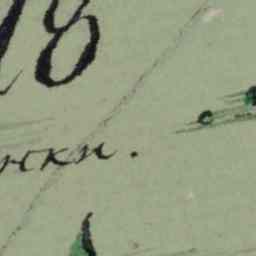 18
нки.